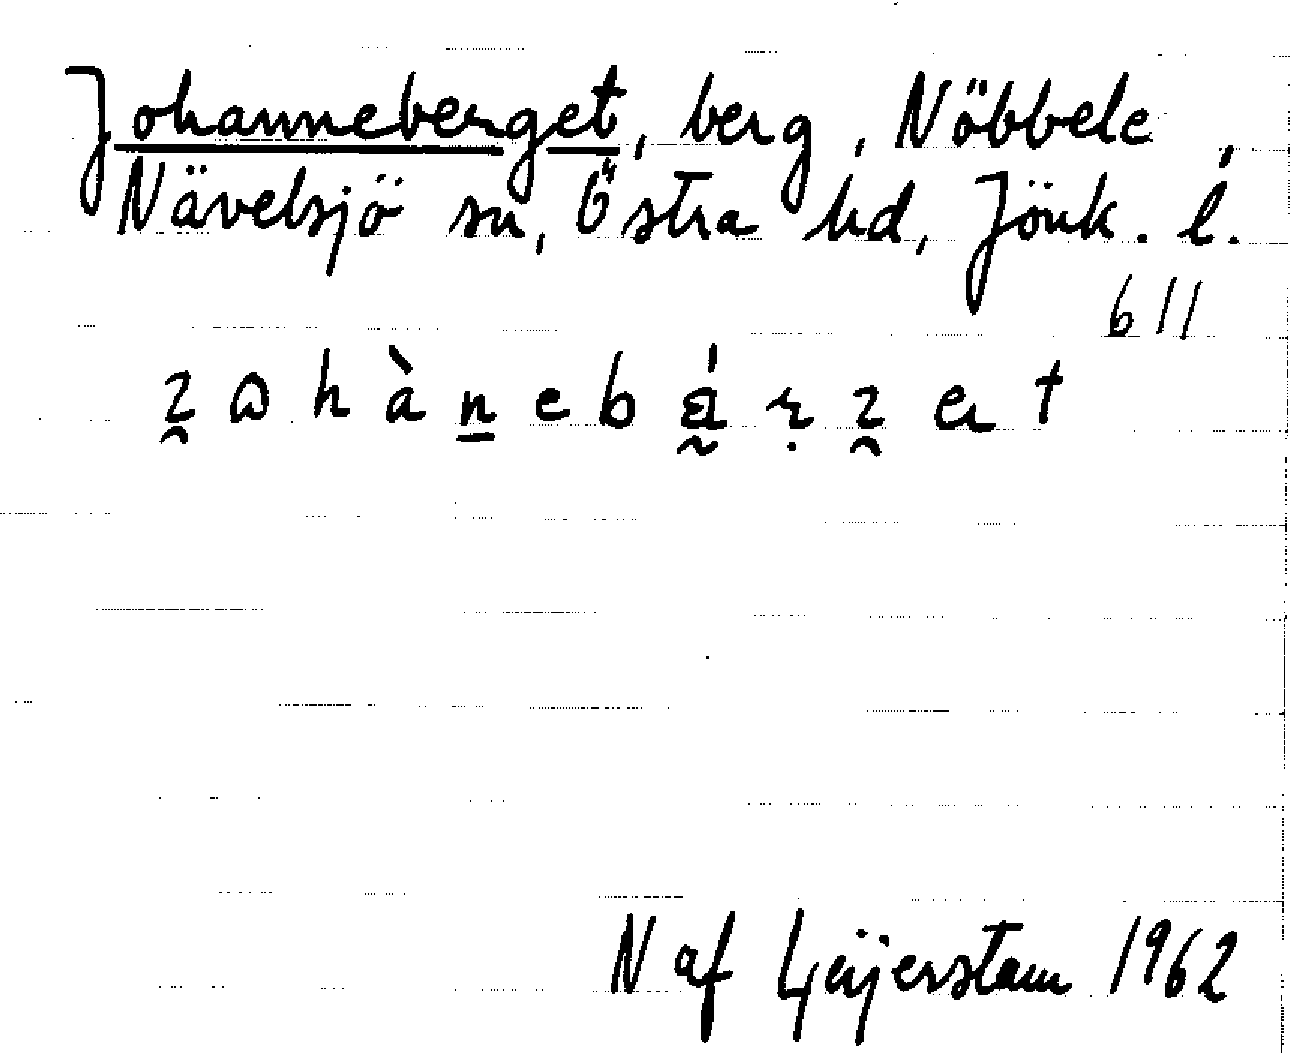 Johanneberget, berg, Nöbbele,
Nävelsjö sn, Östra hd, Jönk. l.
611
N af Geijerstam 1962